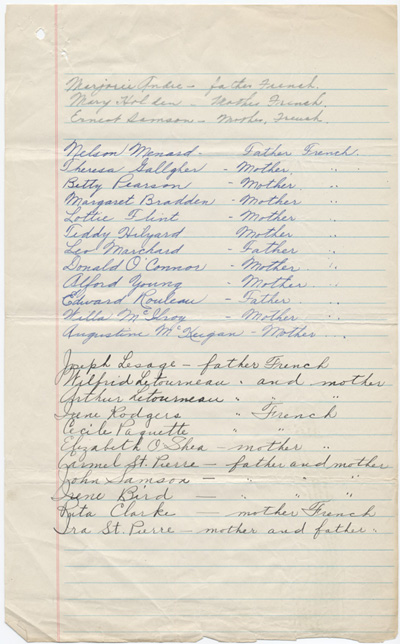 Marjorie Andre - father French.
Mary Holden - Mother French.
Ernest Samson - Mother, French.
Nelson Menard - Father French.
Theresa Gallgher - Mother " "
Betty Pearson - Mother "
Margaret Bradden - Mother "
Lottie Flint - Mother "
Teddy Hilyard Mother "
Leo Marchard - Father "
Donald O'Connor - Mother "
Alford Young - Mother "
Edward Rouleau - Father "
Willa McIlroy - Mother "
Augustine McGuigan - Mother "
Joseph Lesage - father French
Wilfrid Letourneau " and mother
Arthur Letourneau " " "
Irene Rodgers " French
Cecile Paquette " "
Elizabeth O'Shea - mother "
Carmel St. Pierre - father and mother
John Samson - " " "
Irene Bird - " " "
Rita Clarke - mother French
Ira St. Pierre - mother and father "